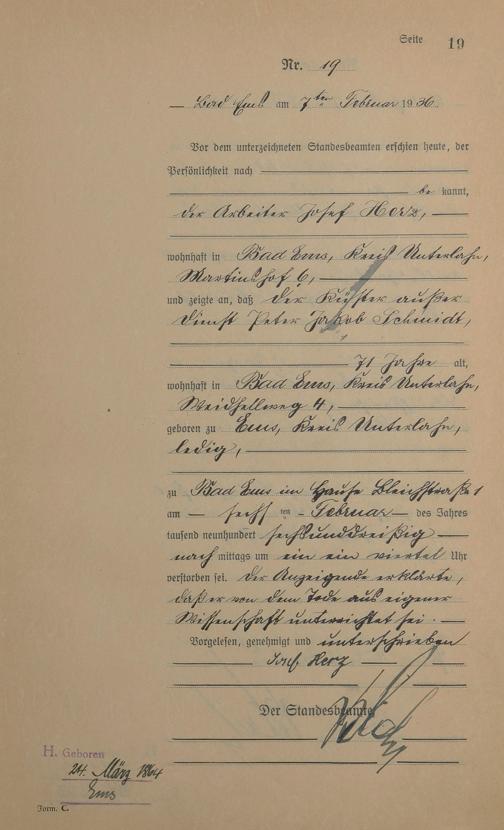 Seite 19
Nr. 19
Bad Ems am 7ten Februar 1936.
Vor dem unterzeichneten Standesbeamten erschien heute, der
Persönlichkeit nach
be kannt,
der Arbeiter Josef Herz,
wohnhaft in Bad Ems, Kreis Unterlahn,
Martinshof 6,
und zeigte an, daß der Küster außer
Dienst Peter Jakob Schmidt,
71 Jahre alt,
wohnhaft in Bad Ems, Kreis Unterlahn,
Weidhellweg 4,
geboren zu Ems, Kreis Unterlahn,
ledig,
zu Bad Ems im Hause Bleichstraße 1
am sechs ten Februar des Jahres
tausend neunhundert sechsunddreißig
nach mittags um ein ein viertel Uhr
verstorben sei. Der Anzeigende erklärte,
daß er von dem Tode aus eigener
Wissenschaft unterrichtet sei.
Vorgelesen, genehmigt und unterschrieben
Josef Herz
Der Standesbeamte
H. Geboren
24. März 1864
Ems
Form. C.